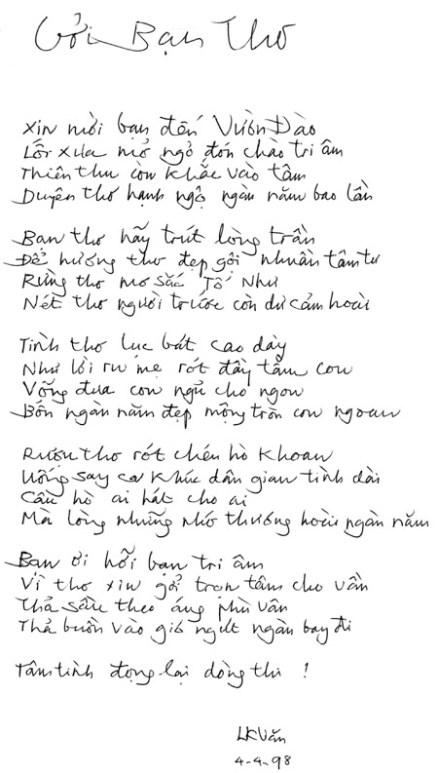 Gởi Bạn Thơ
Xin mời bạn đến Vườn Đào
Lối xưa mở ngỏ đón chào tri âm
Thiên thu còn khắc vào tâm
Duyên thơ hạnh ngộ ngàn năm bao lần
Bạn thơ hãy trút lòng trần
Để hương thơ đẹp gội nhuần tâm tư
Rừng thơ mơ sắc Tố Như
Nét thơ người trước còn dư cảm hoài
Tình thơ lục bát cao dày
Như lời ru mẹ rót đầy tâm con
Võng đưa con ngủ cho ngon
Bốn ngàn năm đẹp mộng tròn con ngoan
Rượu thơ rót chén hò khoan
Uống say ca khúc dân gian tình dài
Câu hò ai hát cho ai
Mà lòng những nhớ thương hoài ngàn năm
Bạn ơi hỡi bạn tri âm
Vì thơ xin gởi trọn tâm cho vần
Thả sầu theo áng phù vân
Thả buồn vào gió ngút ngàn bay đi
Tâm tình đọng lại dòng thi !
LKVăn
4-4-98